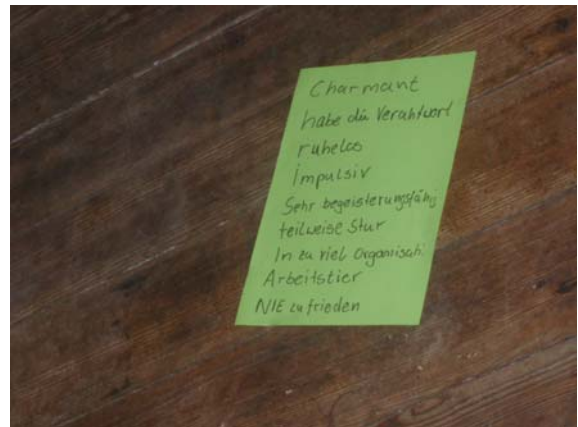 Charmant
habe die Verantwort
ruhelos
impulsiv
Sehr begeisterungsfähig
teilweise Stur
In zu viel Organisati.
Arbeitstier
NIE zufrieden